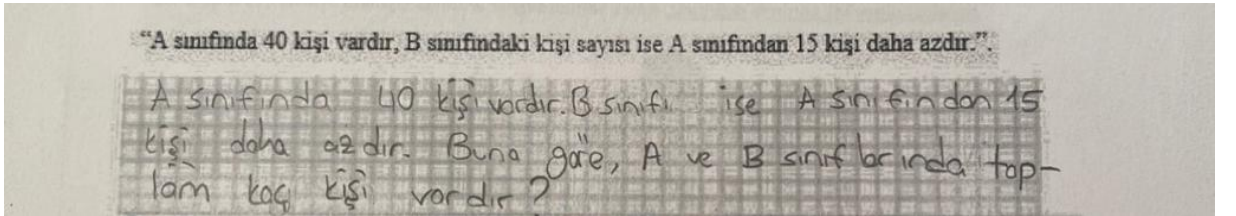 “A sınıfında 40 kişi vardır, B sınıfındaki kişi sayısı ise A sınıfından 15 kişi daha azdır.”.
A sınıfında 40 kişi vardır. B sınıfı ise A sınıfından 15
kişi daha azdır. Buna göre, A ve B sınıflarında top-
lam kaç kişi vardır?